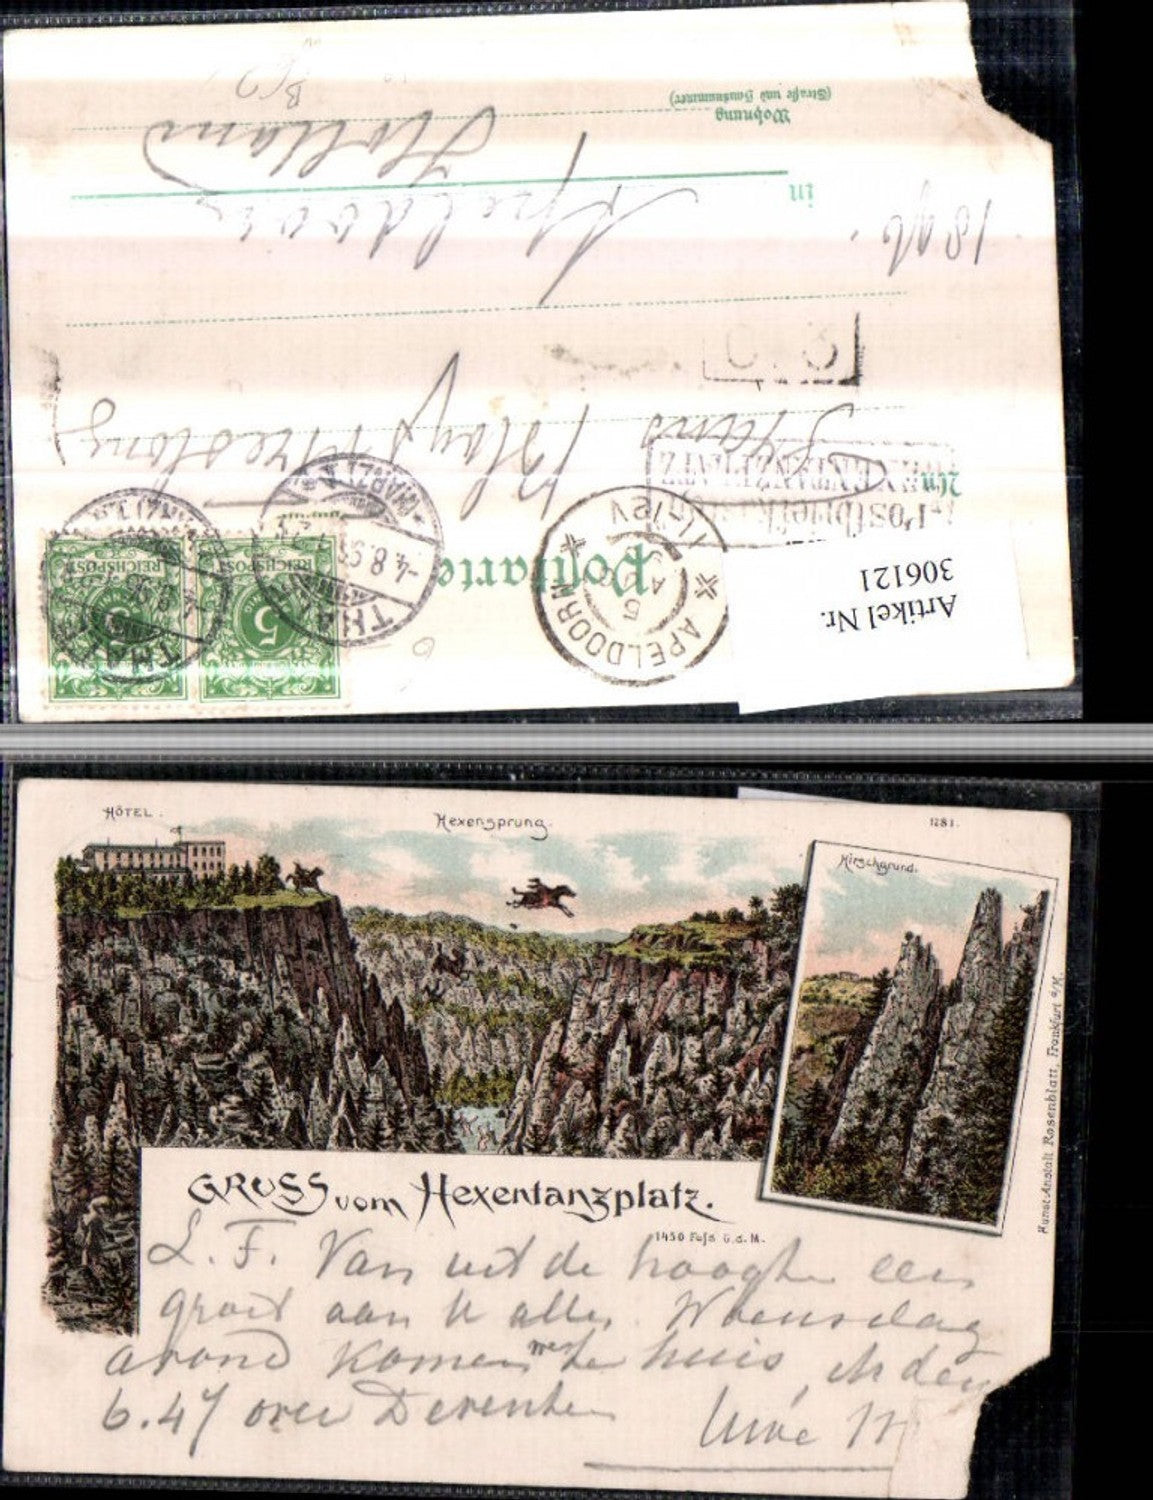 Postkarte
An
in
Wohnung
(Straße und Hausnummer)
Apeldoorn
Holland
1896
REICHSPOST
5
REICHSPOST
5
THALE
4.8.96
APELDOORN
5
AUG
96
Postbriefkasten
HEXENTANZPLATZ
Artikel Nr.
306121
HÔTEL.
Hexensprung.
1281.
Hirschgrund.
GRUSS vom Hexentanzplatz.
1450 Fuß ü.d.M.
Kunst-Anstalt Rosenblatt, Frankfurt a/M.
L. F. Van uit de hooghte een
groet aan U allen. Woensdag
avond komen we te huis, den
6.47 over Deventer